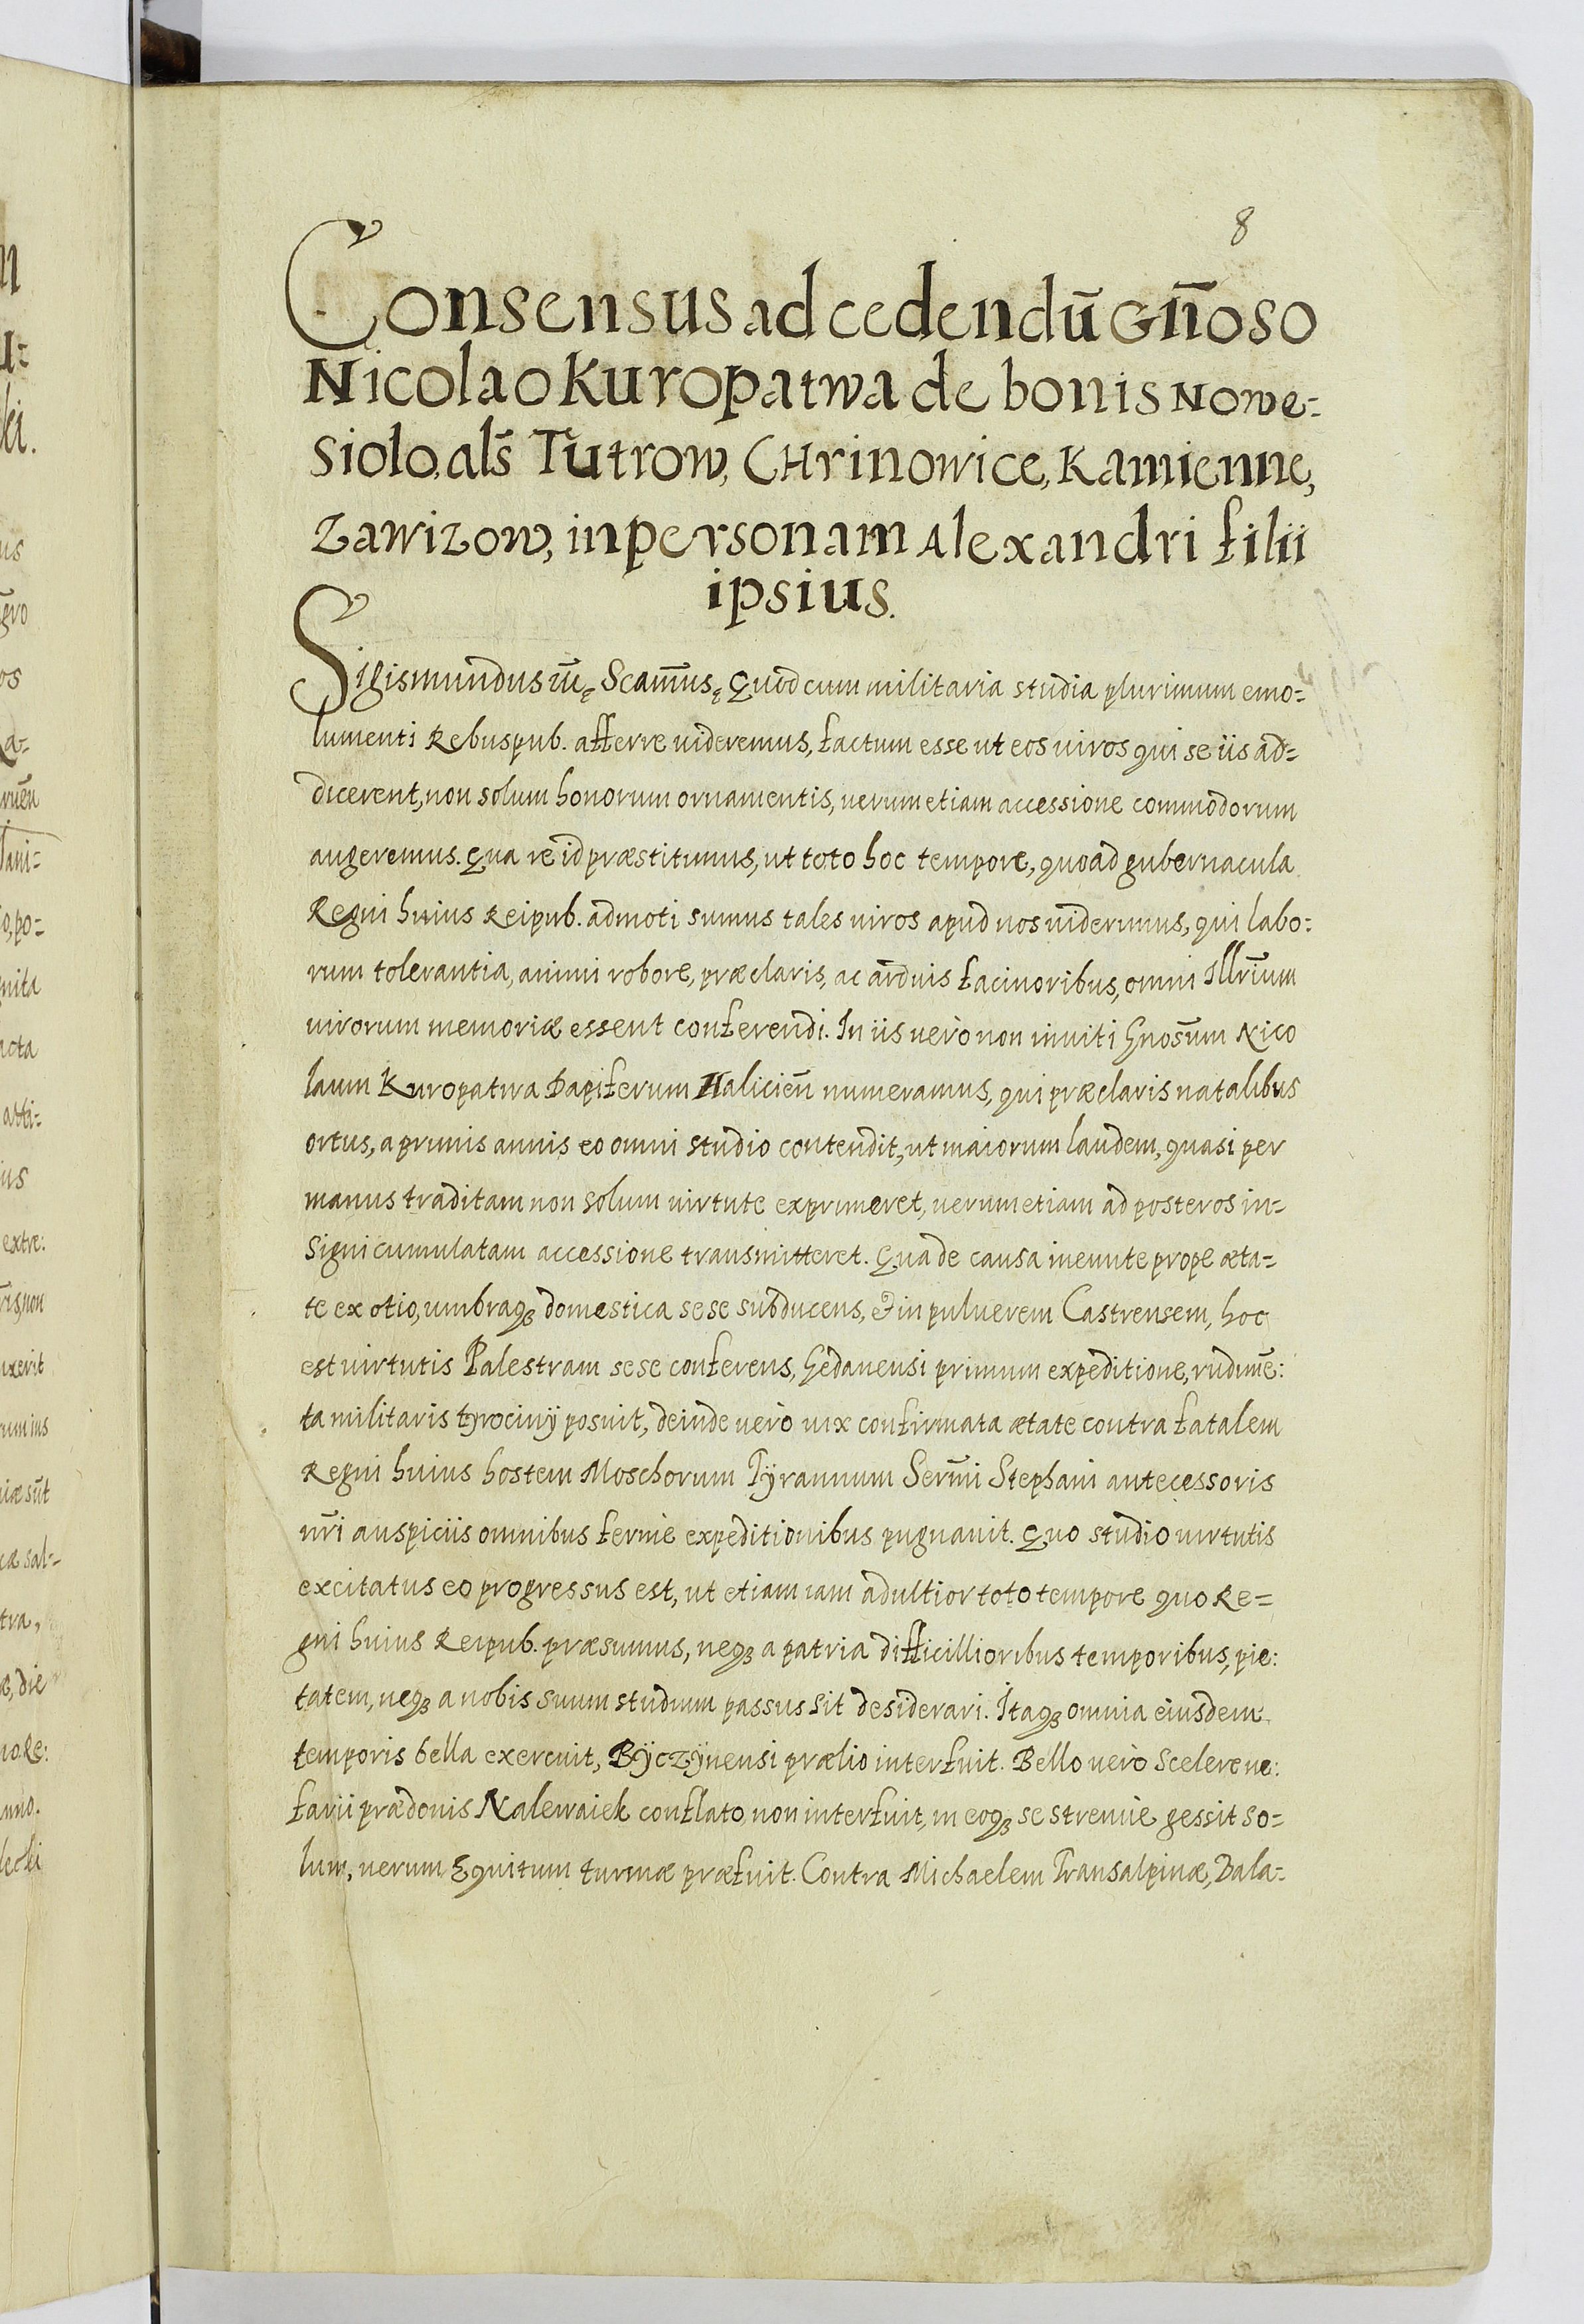 8
Consensus ad cedendũ Gñoso
Nicolao Kuropatwa de bonis Nowe=
siolo, als̃ Tutrow, Chrinowice, Kamienne,
Zawizow, in personam Alexandri filii
ipsius.
Sigismundus iiiꝫ Scam̃usꝫ Quod cum militaria studia plurimum emo=
lumenti Rebuspub. afferre uideremus, factum esse ut eos uiros qui se iis ad=
dicerent, non solum honorum ornamentis, uerum etiam accessione commodorum
augeremus. Qua re id præstitimus, ut toto hoc tempore, quo ad gubernacula
Regni huius Reipub. admoti sumus tales uiros apud nos uiderimus, qui labo:
rum tolerantia, animi robore, præclaris, ac arduis facinoribus, omni Illr̃ium
uirorum memoriæ essent conferendi. In iis uerò non inuiti Gnosũm Nico
laum Kuropatwa Dapiferum Halicieñ numeramus, qui præclaris natalibus
ortus, a primis annis eo omni studio contendit, ut maiorum laudem, quasi per
manus traditam non solum uirtute exprimeret, uerum etiam ad posteros in=
signi cumulatam accessione transmitteret. Qua de causa ineunte prope æta=
te ex otio, umbraqꝫ domestica sese subducens, & in puluerem Castrensem, hoc
est uirtutis Palestram sese conferens, Gedanensi primum expeditione, rudimẽ:
ta militaris tyrocinij posuit, deinde uerò uix confirmata ætate contra fatalem
Regni huius hostem Moschorum Tÿrannum Serm̃i Stephani antecessoris
nr̃i auspiciis omnibus fermè expeditionibus pugnauit. Quo studio uirtutis
excitatus eo progressus est, ut etiam iam adultior toto tempore quo Re=
gni huius Reipub. præsumus, neqꝫ a patria difficillioribus temporibus, pie:
tatem, neqꝫ a nobis suum studium passus sit desiderari. Itaqꝫ omnia eiusdem
temporis bella exercuit, Bÿczÿnensi prælio interfuit. Bello uerò Scelere ne:
farii prædonis Nalewaiek conflato, non interfuit, in eoqꝫ se strenuè gessit so=
lum, uerum Equitum turmæ præfuit. Contra Michaelem Transalpinæ, Vala=